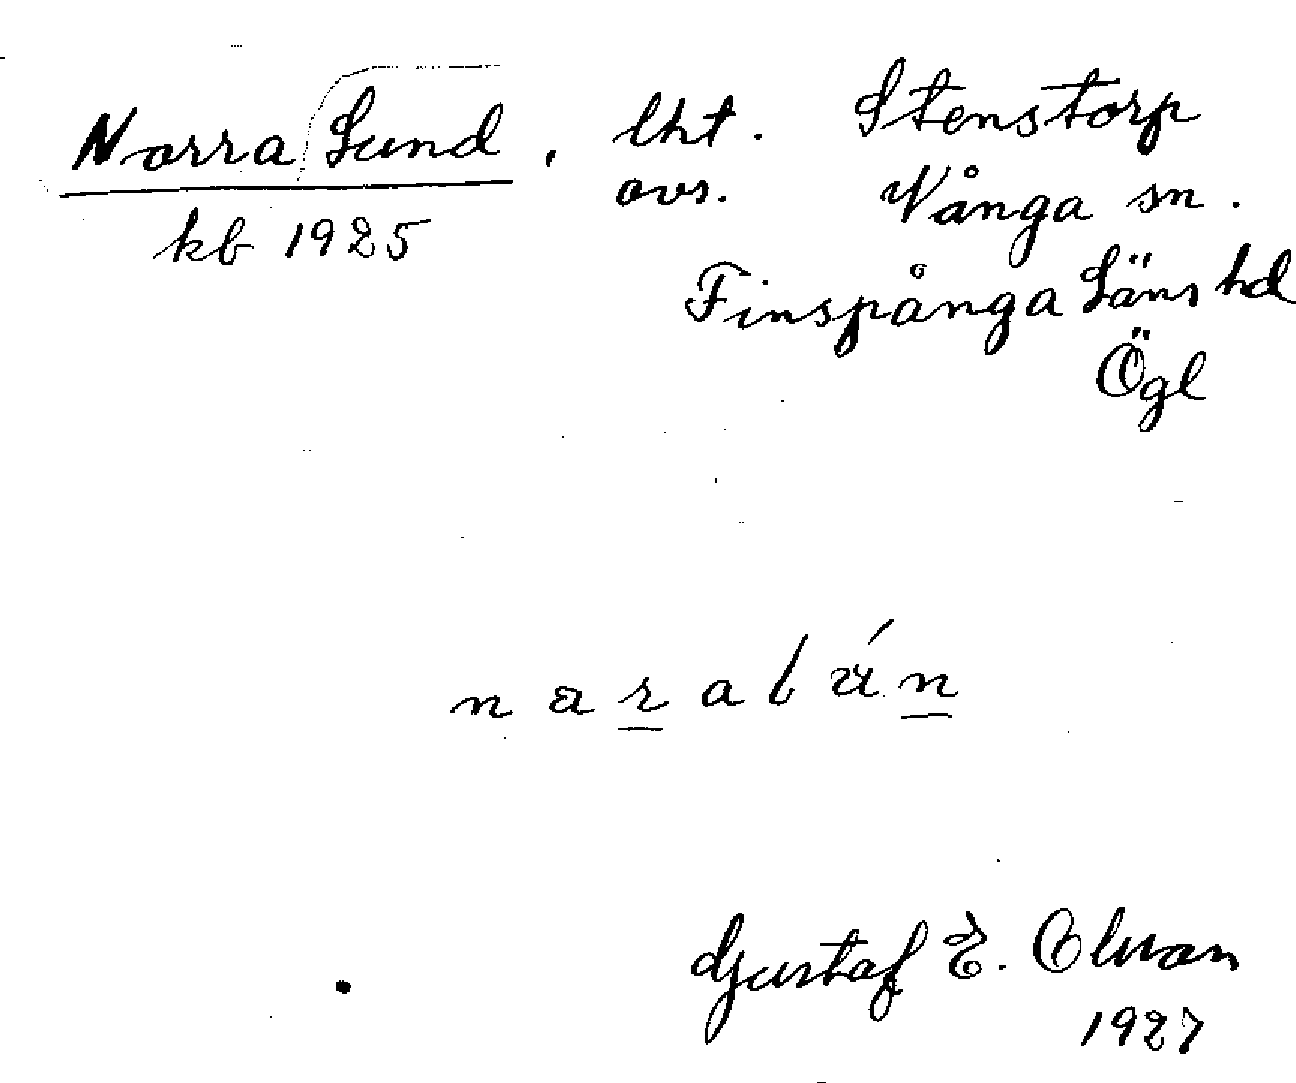 Norra Lund, lht. Stenstorp
kb 1925 avs. Vånga sn.
Finspånga Läns hd
Ögl
naralún
Gustaf E. Olson
1927